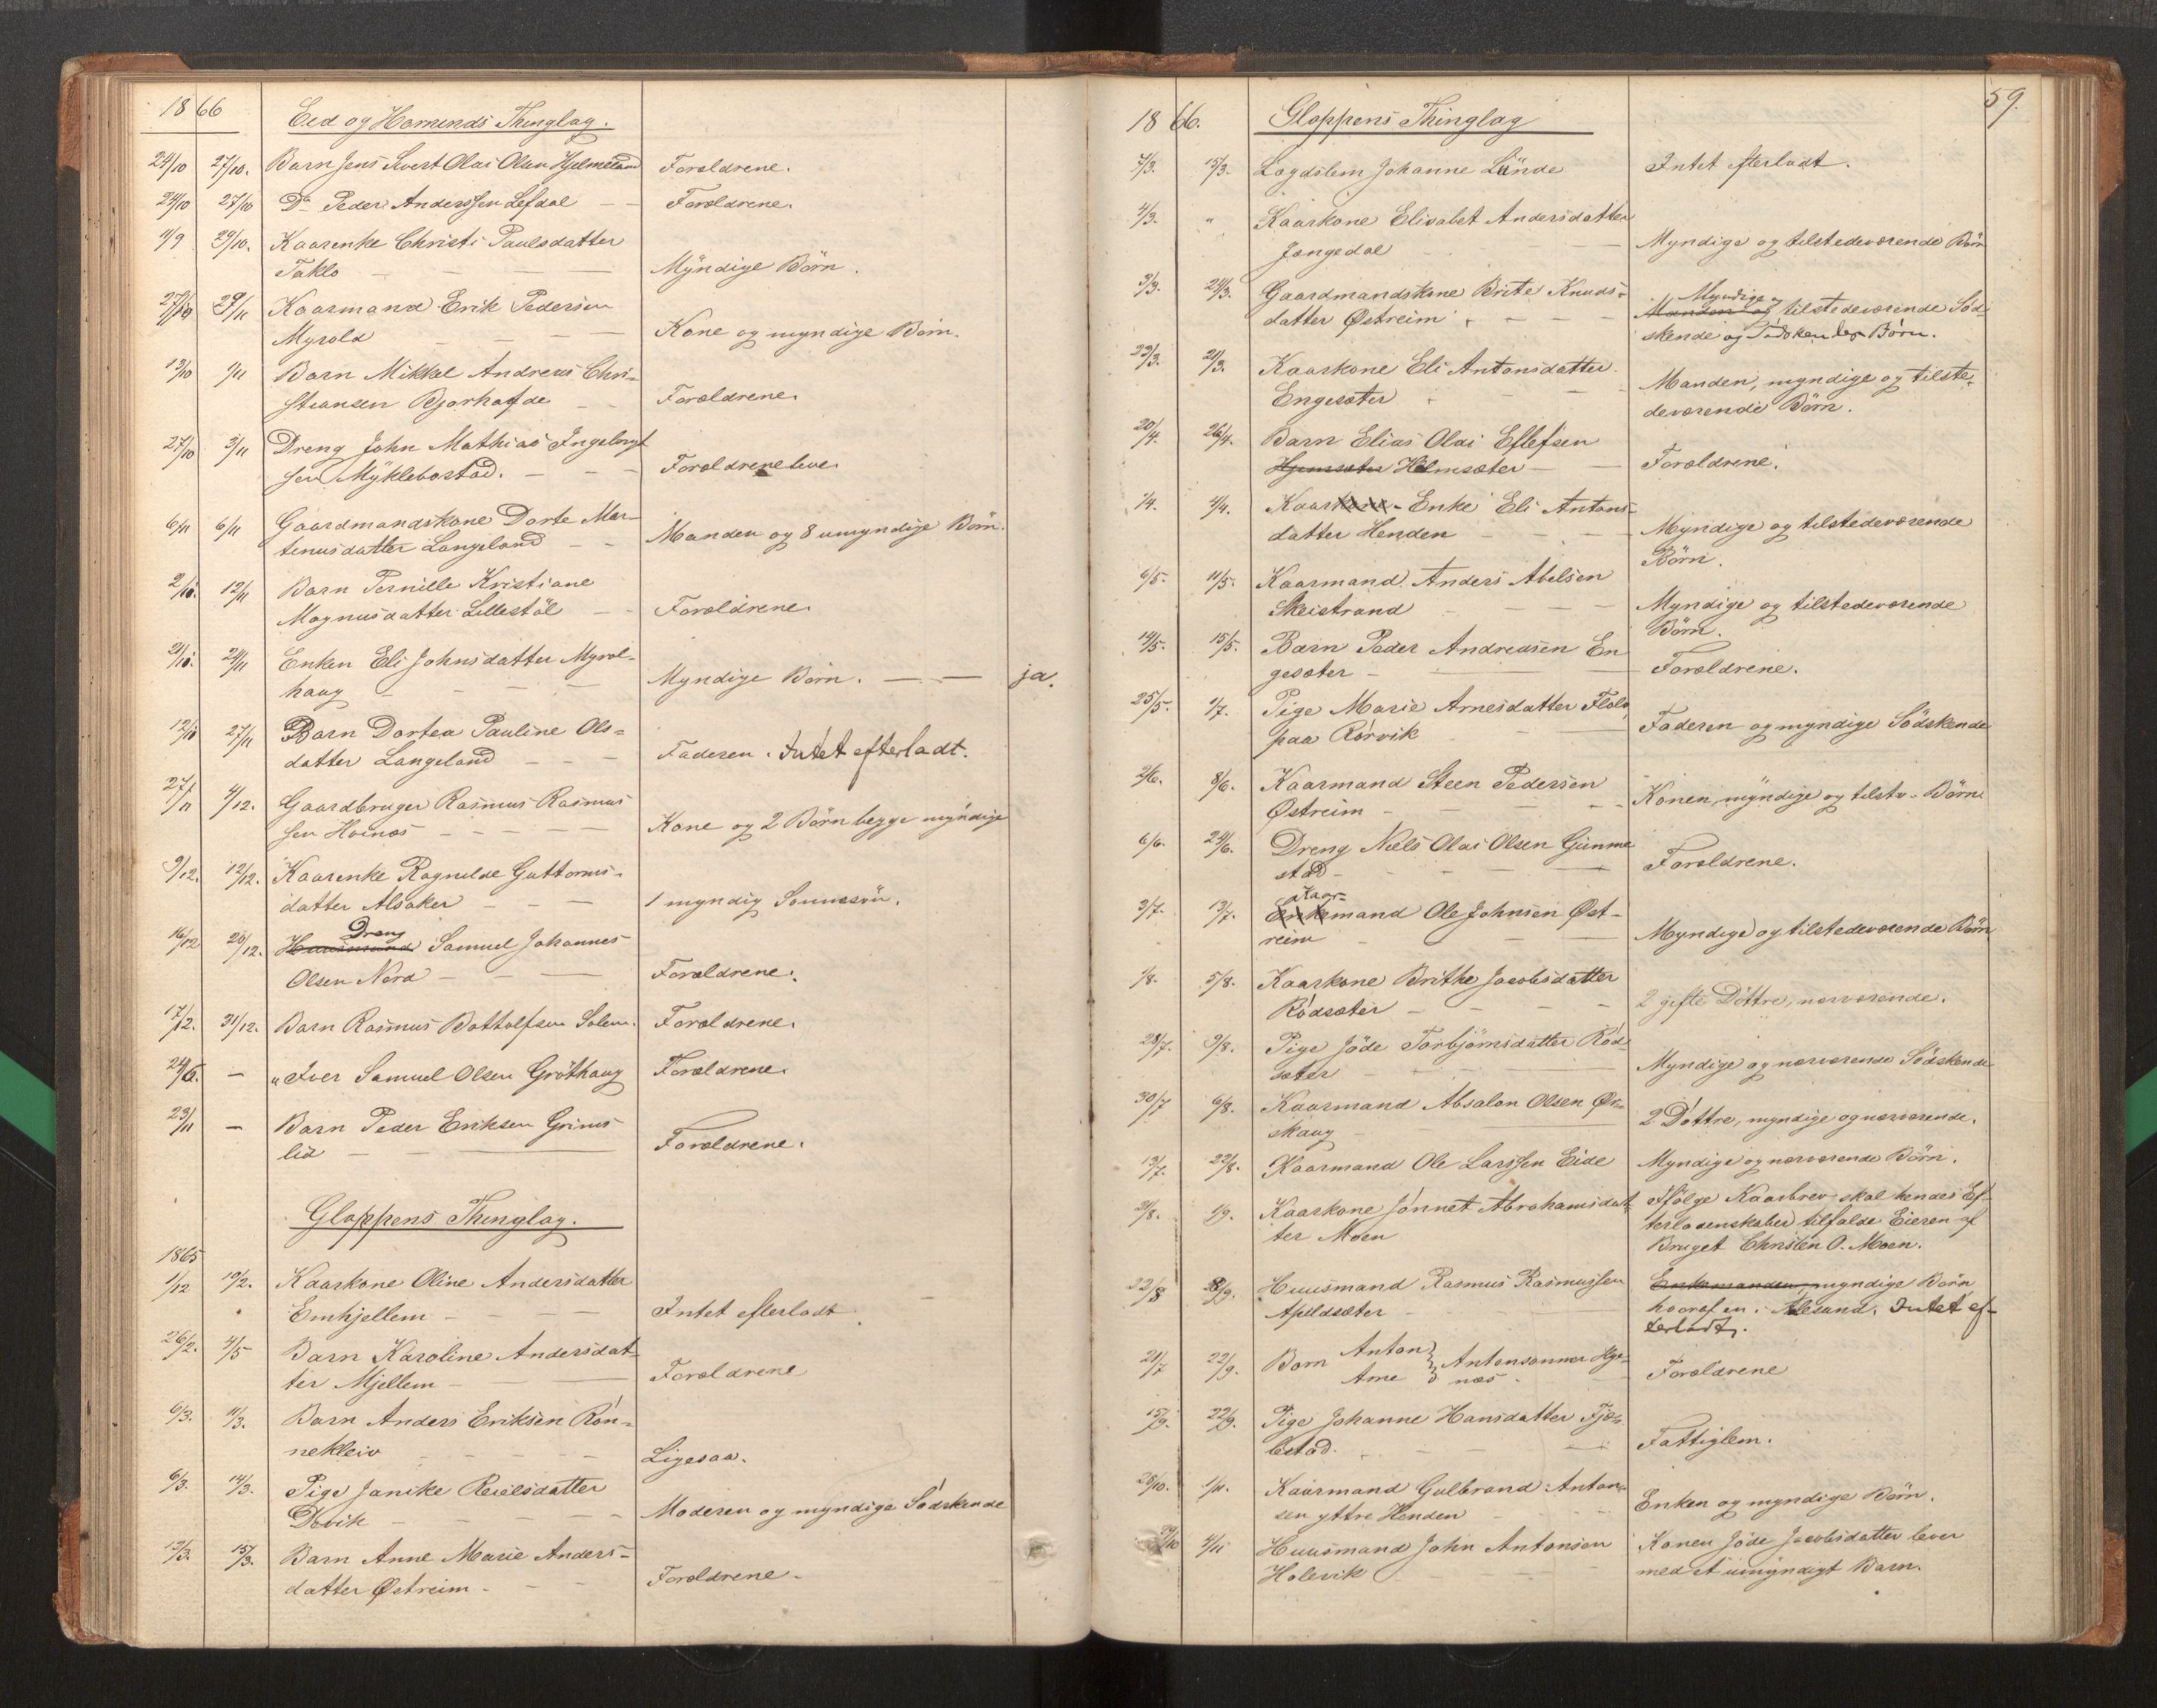 1866 Eed og Hornends Thinglag.
24/10 27/10. Barn Jens Sivert Olai Olsen Hjelmeland Forældrene.
24/10 27/10 Do Peder Anderssen Lefdal — — Forældrene.
11/9 29/10. Kaarenke Christi Paulsdatter
Taklo — — — — Myndige Börn.
27/10 29/11 Kaarmand Erik Pedersen
Myrold — — — Kone og myndige Börn.
13/10 1/11 Barn Mikkal Andreas Chri-
stiansen Bjorhofde — — Forældrene.
27/10 3/11 Dreng John Mathias Ingebrigt
sen Myklebostad. — — — Forældrene leve.
6/11 6/11 Gaardmandskone Dorte Mar-
tinusdatter Langeland — — Manden og 8 umyndige Börn.
2/10. 12/11 Barn Pernille Kristiane
Magnusdatter Lillestöl — — Forældrene.
21/10. 24/11 Enken Eli Johnsdatter Myrol-
haug — — — — Myndige Börn. — — ja.
12/10 27/11 Barn Dortea Pauline Ols-
datter Langeland — — — Faderen. Intet efterladt.
27/11 4/12. Gaardbruger Rasmus Rasmus
sen Hoines — — — — — Kone og 2 Börn begge myndige
9/12. 12/12. Kaarenke Ragnilde Guttorms-
datter Alsaker — — — 1 myndig Sønnesøn.
Dreng
16/12 20/12. Huusmand Samuel Johannes
Olsen Nord — — — Forældrene.
17/12. 31/12. Barn Rasmus Bottolfsen Solem. Forældrene.
24/6. — " Iver Samuel Olsen Gröthaug Forældrene.
23/11 — Barn Peder Eriksen Grims
lid — — — Forældrene.
Gloppens Thinglag.
1865
1/12 10/2. Kaarkone Oline Andersdatter
Emhjellem — — — Intet efterladt.
26/2. 4/5 Barn Karoline Andersdat-
ter Mjellem — — — Forældrene
6/3. 11/3. Barn Anders Eriksen Rön-
nekleiv — — — — Ligesaa.
6/3. 14/3. Pige Janike Reielsdatter
Devik — — — — — Moderen og myndige Södskende
13/3. 15/3. Barn Anne Marie Anders-
datter Østreim — — — Forældrene.
59.
1866. Gloppens Thinglag
7/3. 15/3. Lægdslem Johanne Lunde Intet efterladt.
4/3. " Kaarkone Elisabet Andersdatter
Jangedal — Myndige og tilstedeværende Börn
3/3. 24/3. Gaardmandskone Brite Knuds-
Myndige
datter Østreim — — — — Manden og tilstedeværende Söd-
skende og Södskendes Börn.
22/3. 21/3. Kaarkone Eli Antonsdatter
Engesæter — — — Manden, myndige og tilste-
deværende Börn.
20/4. 26/4. Barn Elias Olai Ellefsen
Hjemsæter Helmsæter — — Forældrene.
1/4. 4/4. Kaarkone-Enke Eli Antons-
datter Henden — — — Myndige og tilstedeværende
Börn.
6/5. 11/5. Kaarmand Anders Abelsen
Skeistrand — — — Myndige og tilstedeværende
Börn.
14/5. 15/5. Barn Peder Andreasen En
gesæter — — — Forældrene.
25/5. 1/7. Pige Marie Arnesdatter Flolo,
paa Rörvik — — Faderen og myndige Södskende
2/6. 8/6. Kaarmand Steen Pedersen
Østreim — — — — Konen, myndige og tilstv. Börn.
6/6. 24/6. Dreng Nils Olai Olsen Gimme
stad — — — — Forældrene.
Kaar-
3/7. 13/7. Enkemand Ole Johnsen Øst-
reim — — — Myndige og tilstedeværende Börn
1/8. 5/8. Kaarkone Brithe Jacobsdatter
Rödsæter — — — — 2 gifte Döttre, nærværende.
28/7. 9/8. Pige Jöde Torbjörnsdatter Röd-
sæter — — — — Myndige og nærværende Södskende
30/7 6/8. Kaarmand Absalon Olsen Øv-
skaug — — — 2 Döttre, myndige og nærværende.
13/7. 22/8. Kaarmand Ole Larssen Eide Myndige og nærværende Börn.
21/8. 1/9. Kaarkone Jönnet Abrahamsdat-
ter Moen Ifölge Kaarbrev skal hendes Ef-
terladenskaber tilfalde Eieren af
Bruget Christen O. Moen.
22/8 8/9. Huusmand Rasmus Rasmussen
Apeldsæter — Enkemanden, myndige Börn
hvoraf en i Alesund. Intet ef-
terladt.
21/7 22/9. Born Anton Arne } Antonsønner Hye-
næs — Forældrene
15/9. 22/9. Pige Johanne Hansdatter Fjæ-
bestad. — — — Fattiglem.
28/10. 1/11. Kaarmand Gulbrand Anton-
sen yttre Henden — — Enken og myndige Börn.
29/10 4/11 Huusmand John Antonsen
Holevik — — — Konen Jöde Jacobsdatter lever
med et umyndigt Barn.